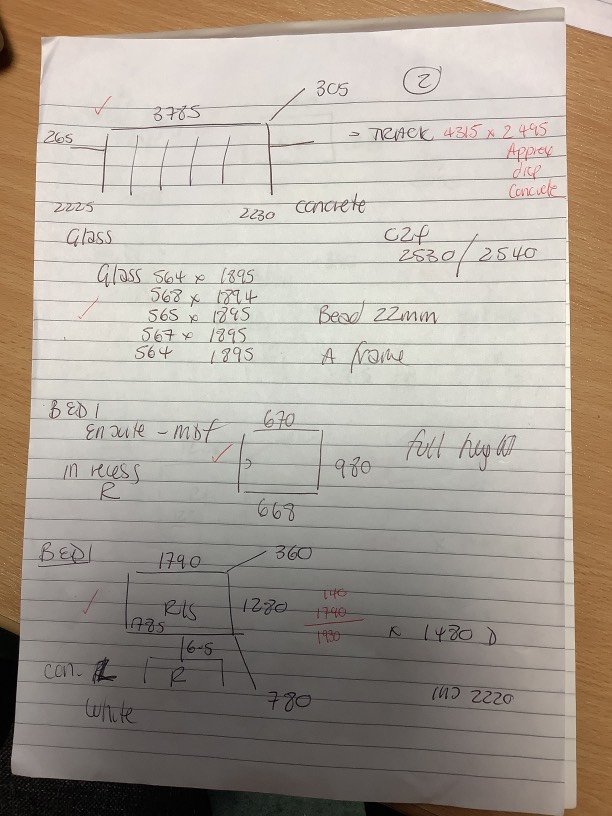 2
305
3785
265
= TRACK 4315 x 2495
Approx
disp
Concrete
2225
2230
concrete
Glass
C2f
2530 / 2540
Glass 564 x 1895
568 x 1894
565 x 1895
Bead 22mm
567 x 1895
564 1895
A frame
BED1
Ensuite - mdf
670
full height
in recess
R
980
668
BED1
1790
360
R1s
1280
140
1790
1930
x 1480 D
1785
16-5
con. L
R
780
IND 2220
White